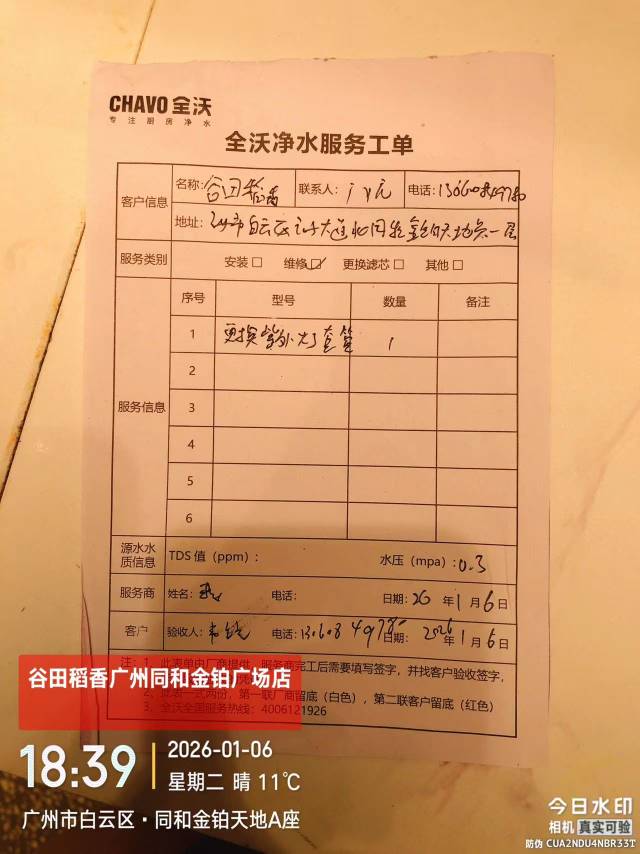 CHAVO 全沃
专注厨房净水
全沃净水服务工单
客户信息
名称: 谷田稻香 联系人: 电话:
地址: 市白云区
服务类别 安装 维修 更换滤芯 其他
服务信息
序号 型号 数量 备注
1 更换紫外灯套管 1
2
3
4
5
6
源水水质信息 TDS 值 (ppm): 水压 (mpa): 0.3
服务商 姓名: 电话: 日期: 26 年 1 月 6 日
客户 验收人: 电话: 日期: 2026 年 1 月 6 日
注: 1、此表单由厂商提供,服务商完工后需要填写签字,并找客户验收签字,
2、此表一式两份,第一联厂商留底(白色),第二联客户留底(红色)
3、全沃全国服务热线: 4006121926
谷田稻香广州同和金铂广场店
18:39 2026-01-06
星期二 晴 11℃
广州市白云区·同和金铂天地A座
今日水印
相机 真实可验
防伪 CUA2NDU4NBR33T